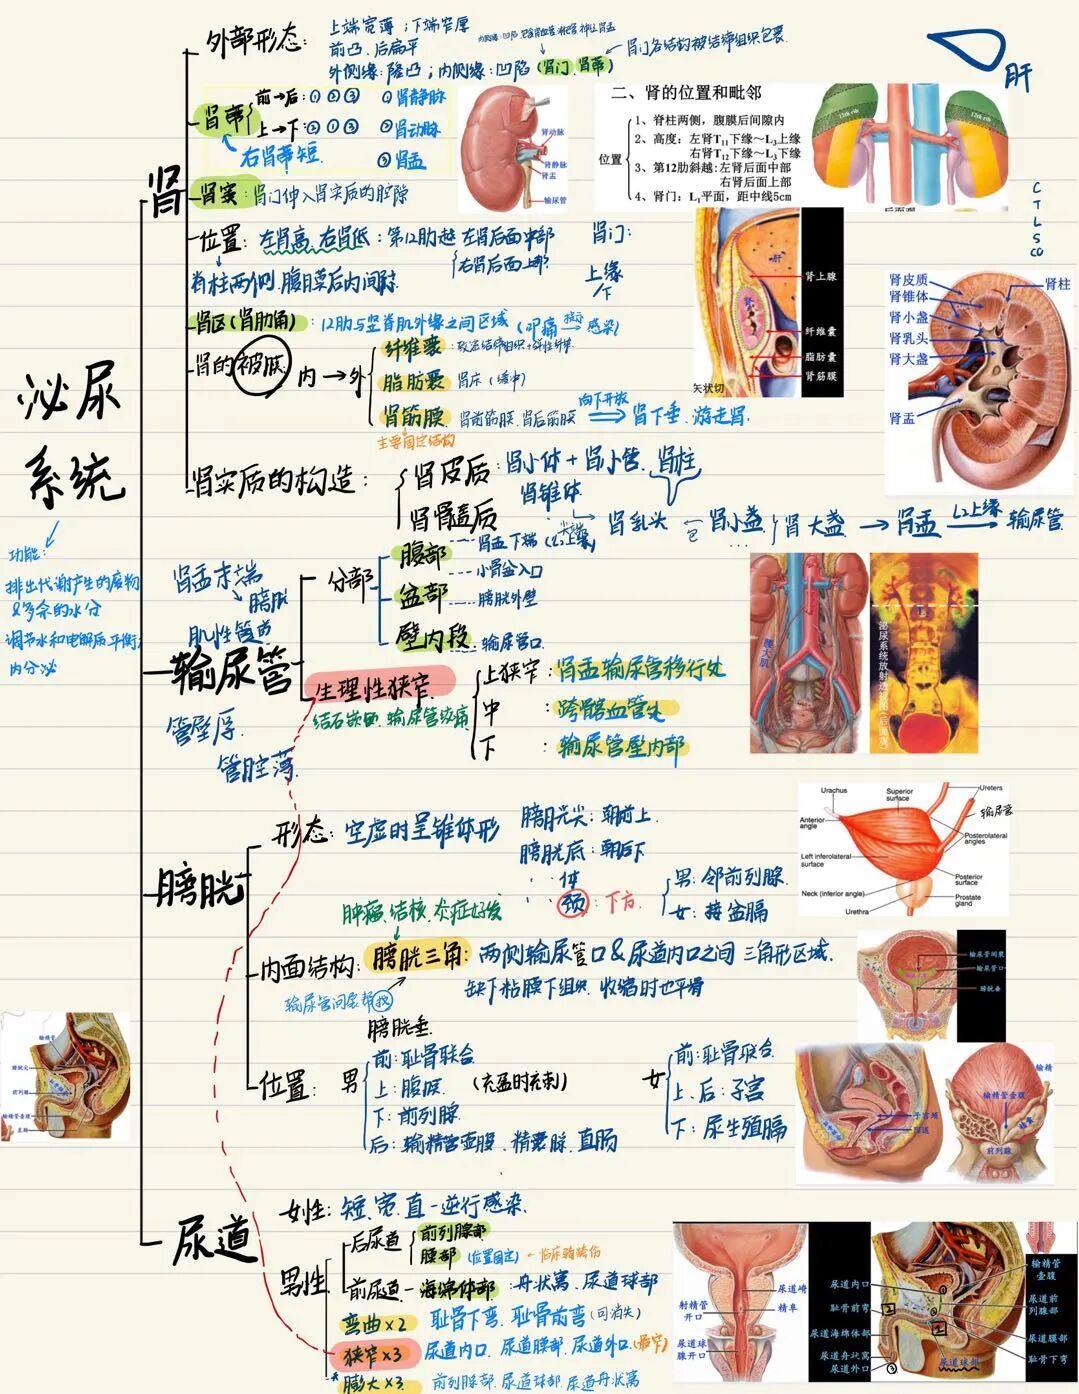 泌尿系统
功能:
排出代谢产生的废物
&多余的水分
调节水和电解质平衡
内分泌
肾
外部形态:
上端宽薄;下端窄厚
前凸、后扁平
外侧缘:隆凸;内侧缘:凹陷(肾门、肾蒂)
肾门各结构被结缔组织包裹
肝
肾蒂
前→后:①②③
上→下:②①③
①肾静脉
②肾动脉
③肾盂
右肾蒂短
肾动脉
肾静脉
肾盂
输尿管
二、肾的位置和毗邻
位置
1、脊柱两侧,腹膜后间隙内
2、高度:左肾T11下缘~L2上缘
右肾T12下缘~L3下缘
3、第12肋斜越:左肾后面中部
右肾后面上部
4、肾门:L1平面,距中线5cm
12th rib
12th rib
后面观
C
T
L
S
CO
肾窦:肾门伸入肾实质的腔隙
位置:左肾高、右肾低:第12肋越 左肾后面中部
右肾后面上部
脊柱两侧、腹膜后间隙
肾门:
上缘
下
肾区(肾肋角):12肋与竖脊肌外缘之间区域(叩痛 提示 感染)
肾的被膜:内→外
纤维囊:致密结缔组织+弹性纤维
脂肪囊 肾床(缓冲)
肾筋膜 肾前筋膜、肾后筋膜 向下开放 肾下垂、游走肾
主要固定结构
肝
肾
肾上腺
纤维囊
脂肪囊
肾筋膜
矢状切
肾皮质
肾锥体
肾小盏
肾乳头
肾大盏
肾盂
肾柱
肾实质的构造:
肾皮质:肾小体+肾小管、肾柱
肾髓质 肾锥体
尖端 肾乳头 包 肾小盏 肾大盏→肾盂 L2上缘 输尿管
输尿管
肾盂末端
膀胱
肌性管道
管壁厚
管腔薄
分部
腹部 肾盂下端(L2上缘)
小骨盆入口
盆部
膀胱外壁
壁内段 输尿管口
生理性狭窄
结石嵌顿、输尿管绞痛
上狭窄:肾盂输尿管移行处
中:跨髂血管处
下:输尿管壁内部
腰大肌
膀胱
形态:空虚时呈锥体形
膀胱尖:朝前上
膀胱底:朝后下
体
颈:下方
男:邻前列腺
女:接盆膈
Urachus
Superior surface
Ureters
输尿管
Anterior angle
Posterolateral angles
Left inferolateral surface
Posterior surface
Neck (inferior angle)
Prostate gland
Urethra
肿瘤、结核、炎症好发
内面结构:膀胱三角:两侧输尿管口&尿道内口之间 三角形区域
缺下粘膜下组织、收缩时也平滑
输尿管间襞帮找
膀胱垂
输尿管间襞
输尿管口
膀胱垂
位置:
男
前:耻骨联合
上:腹膜 (充盈时充刺)
下:前列腺
后:输精管壶腹、精囊腺、直肠
女
前:耻骨联合
上、后:子宫
下:尿生殖膈
输精管
膀胱尖
前列腺
输精管壶腹
直肠
子宫颈
阴道
输精
输精管壶腹
精囊
前列腺
尿道
女性:短、宽、直-逆行感染
男性
后尿道
前列腺部
膜部(位置固定)←临床骑跨伤
前尿道-海绵体部:舟状窝、尿道球部
弯曲×2 耻骨下弯、耻骨前弯(可消失)
狭窄×3 尿道内口、尿道膜部、尿道外口(最窄)
*膨大×3 前列腺部、尿道球部、尿道舟状窝
射精管开口
尿道球腺开口
尿道嵴
精阜
尿道内口
耻骨前弯
尿道海绵体部
尿道舟状窝
尿道外口
尿道球部
输精管壶腹
尿道前列腺部
尿道膜部
耻骨下弯